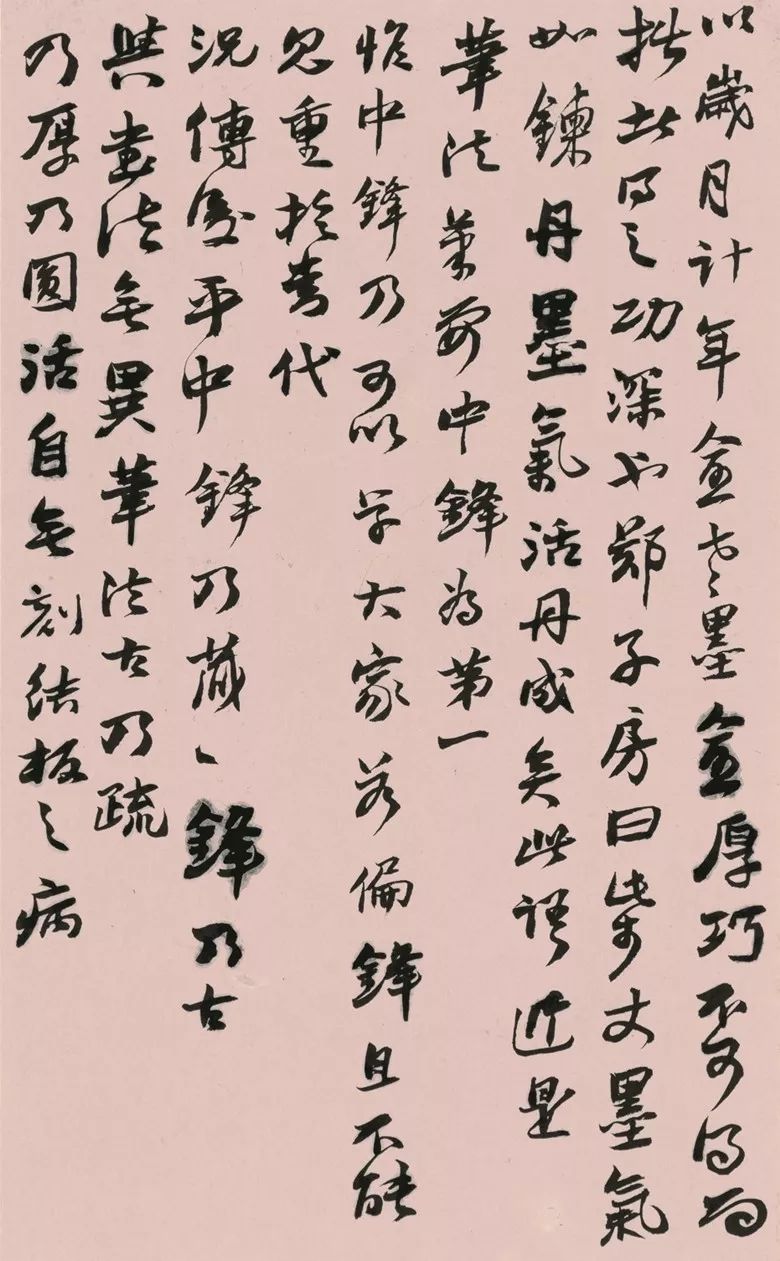 以歲月計年愈老墨愈厚巧不可得而
拙者得之功深也鄭子房曰柴丈墨氣
如鍊丹墨氣活丹成矣此語近是
筆法筆要中鋒為第一
惟中鋒乃可以学大家若偏鋒且不能
見重於當代
況傳後乎中鋒乃藏、鋒乃古
與書法無異筆法古乃疏
乃厚乃圓活自無刻結板之病